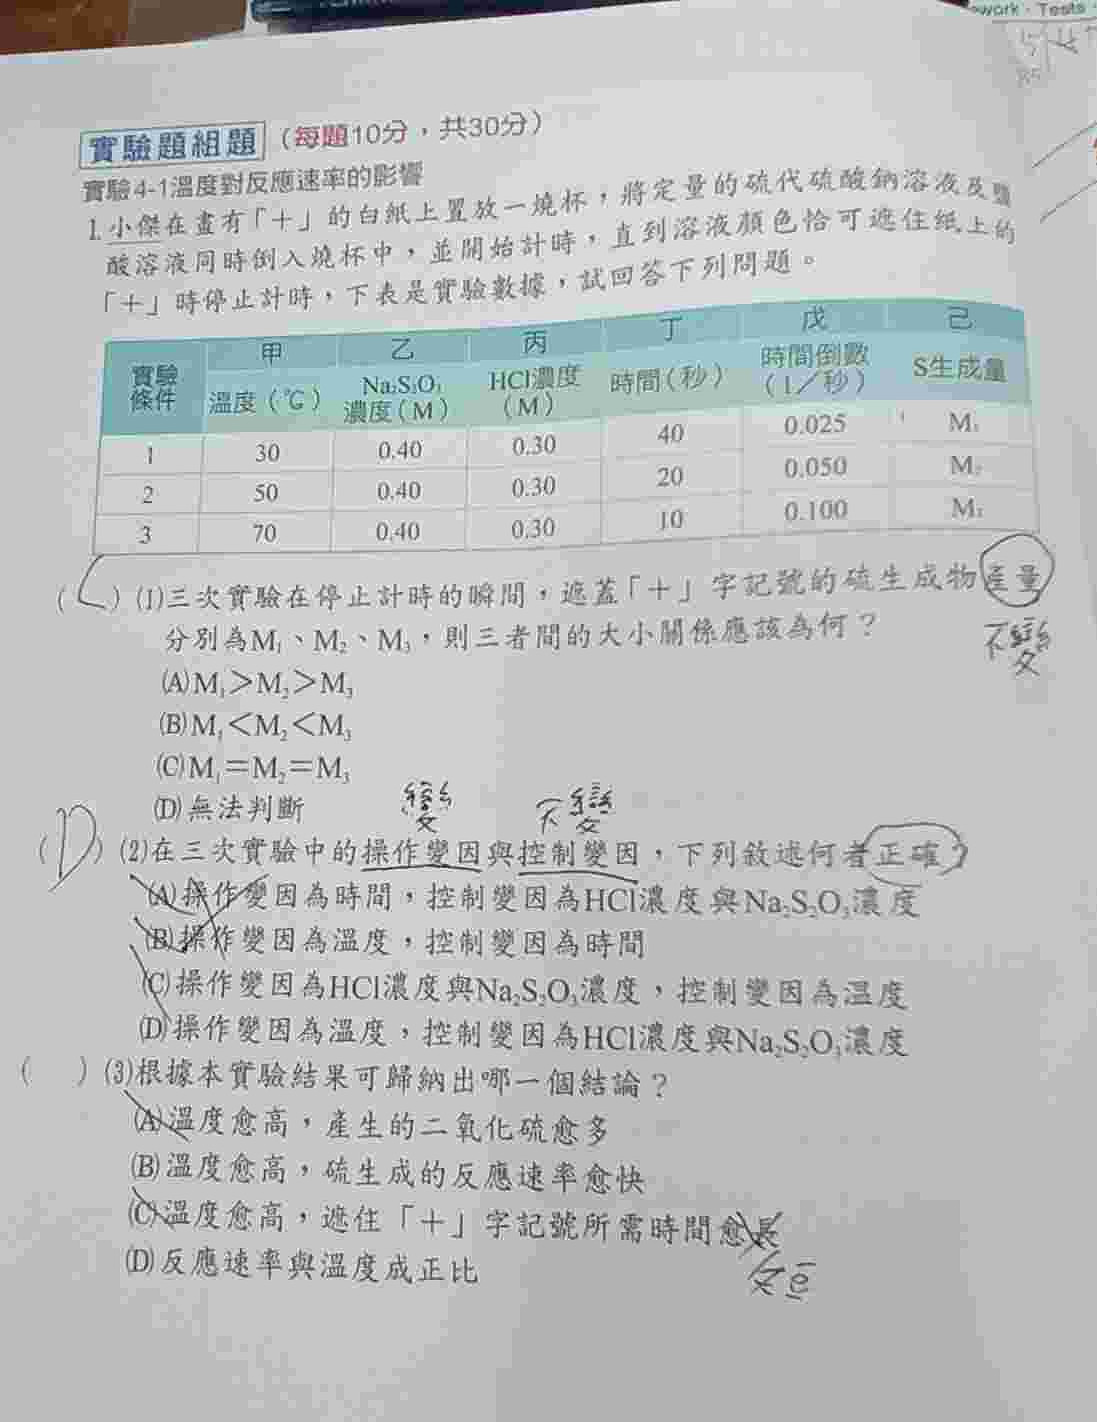 work · Tests
實驗題組題（每題10分，共30分）
實驗4-1溫度對反應速率的影響
1.小傑在畫有「＋」的白紙上置放一燒杯，將定量的硫代硫酸鈉溶液及鹽
酸溶液同時倒入燒杯中，並開始計時，直到溶液顏色恰可遮住紙上的
「＋」時停止計時，下表是實驗數據，試回答下列問題。
實驗條件 甲 乙 丙 丁 戊 己
溫度（℃） Na₂S₂O₃濃度（M） HCl濃度（M） 時間（秒） 時間倒數（1／秒） S生成量
1 30 0.40 0.30 40 0.025 M₁
2 50 0.40 0.30 20 0.050 M₂
3 70 0.40 0.30 10 0.100 M₃
（C）(1)三次實驗在停止計時的瞬間，遮蓋「＋」字記號的硫生成物產量
分別為M₁、M₂、M₃，則三者間的大小關係應該為何？
不變
(A)M₁＞M₂＞M₃
(B)M₁＜M₂＜M₃
(C)M₁＝M₂＝M₃
(D)無法判斷
變 不變
（D）(2)在三次實驗中的操作變因與控制變因，下列敘述何者正確？
(A)操作變因為時間，控制變因為HCl濃度與Na₂S₂O₃濃度
(B)操作變因為溫度，控制變因為時間
(C)操作變因為HCl濃度與Na₂S₂O₃濃度，控制變因為溫度
(D)操作變因為溫度，控制變因為HCl濃度與Na₂S₂O₃濃度
（ ）(3)根據本實驗結果可歸納出哪一個結論？
(A)溫度愈高，產生的二氧化硫愈多
(B)溫度愈高，硫生成的反應速率愈快
(C)溫度愈高，遮住「＋」字記號所需時間愈長
(D)反應速率與溫度成正比
短